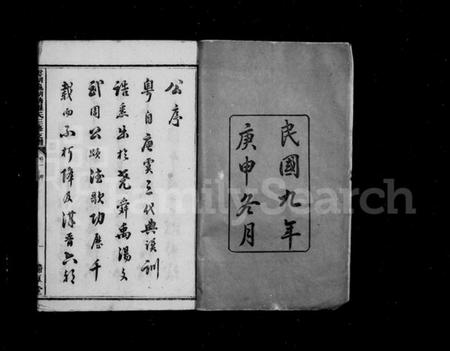 民國九年
庚申冬月
公序
粵自唐虞三代典謨訓
誥悉出於堯舜禹湯文
武周公頌德歌功歷千
載而不朽降及漢晉六朝
FamilySearch